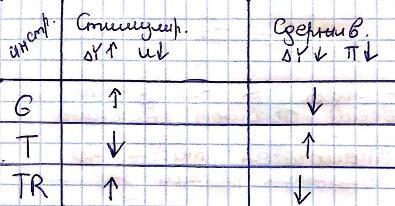 инстр. Стимулир. Сдержив.
ΔY↑ u↓ ΔY↓ π↓
G ↑ ↓
T ↓ ↑
TR ↑ ↓